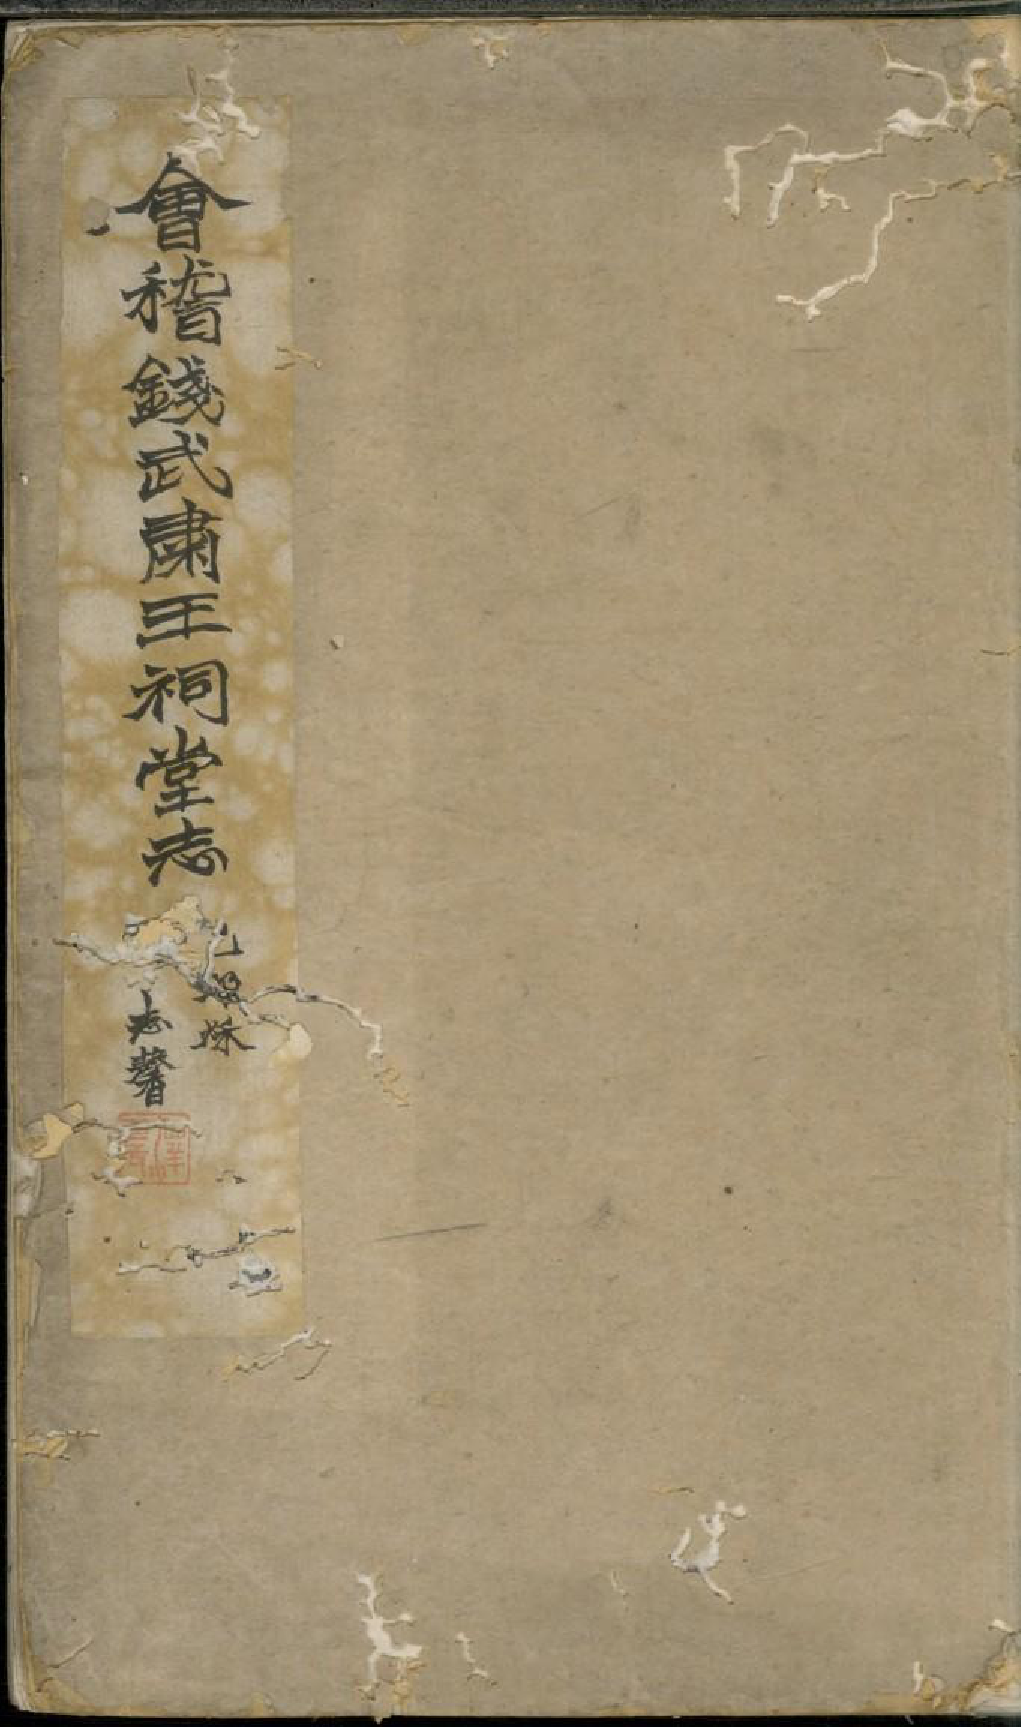 會稽錢武肅王祠堂志
秌
志馨